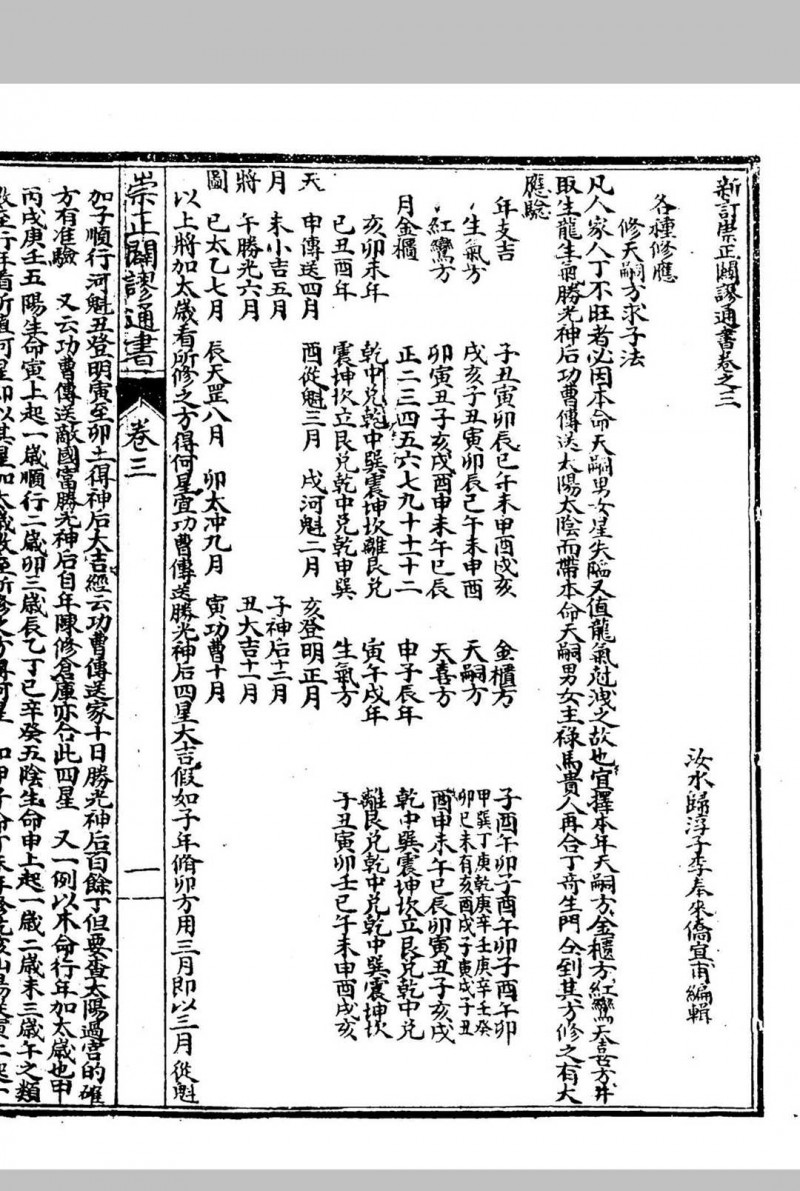 新訂崇正闢謬通書卷之三
汝水歸淳子李奉來僑宜甫編輯
各種修應
修天嗣方求子法
凡人家人丁不旺者必因本命天嗣男女星失臨又值龍氣尅洩之故也宜擇本年天嗣方金櫃方紅鸞天喜方或
取生龍生氣勝光神后功曹傳送太陽太陰而帶本命天嗣男女主祿馬貴人再合丁奇生門仝到其方修之有大
應驗
年支吉 子丑寅卯辰巳午未申酉戌亥 金櫃方 子酉午卯子酉午卯子酉午卯
生氣方 戌亥子丑寅卯辰巳午未申酉 天嗣方 甲巽丁庚乾庚辛壬庚辛壬癸 卯巳未有亥酉戌子寅戌子丑
紅鸞方 卯寅丑子亥戌酉申未午巳辰 天喜方 酉申未午巳辰卯寅丑子亥戌
月金櫃 正二三四五六七九十十十二 申子辰年 乾中巽震坤坎立艮兌乾中兌
亥卯未年 乾中兌乾中巽震坤坎離艮兌 寅午戌年 離艮兌乾中兌乾中巽震坤坎
巳丑酉年 震坤坎立艮兌乾中兌乾中巽 生氣方 子丑寅卯壬巳午未申酉戌亥
天 申傳送四月 酉從魁三月 戌河魁二月 亥登明正月
月 未小吉五月 子神后十二月
將 午勝光六月 丑大吉十一月
圖 巳太乙七月 辰天罡八月 卯太冲九月 寅功曹十月
以上將加太歲看所修之方得何星宜功曹傳送勝光神后四星大吉假如子年脩卯方用三月即以三月從魁
崇正闢謬通書 卷三 一
加子順行河魁丑登明寅至卯土得神后大吉經云功曹傳送家十日勝光神后百餘丁但要查太陽過宮的確
方有准驗 又云功曹傳送敵國富勝光神后自年陳修倉庫亦合此四星 又一例以木命行年加太歲也甲
丙戌庚壬五陽生命寅上起一歲順行二歲卯三歲辰乙丁己辛癸五陰生命申上起一歲二歲未三歲午之類